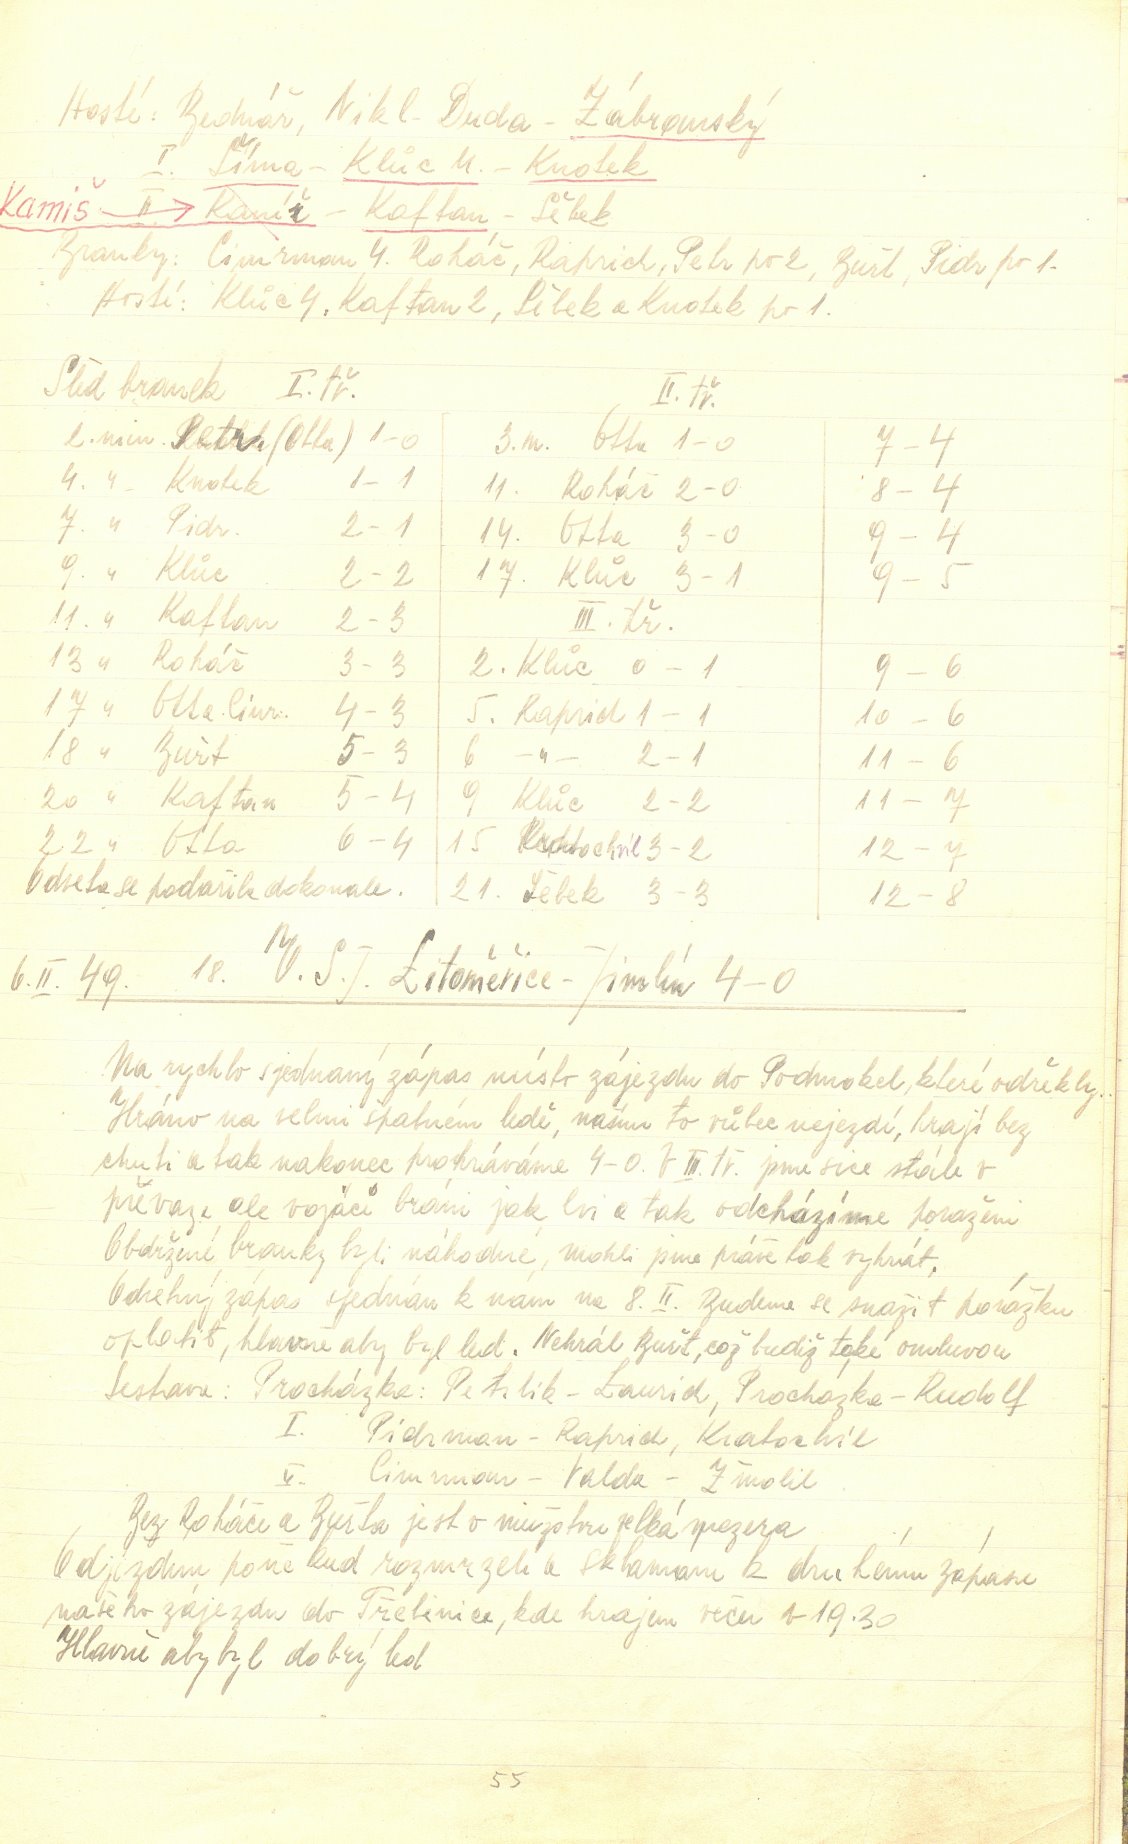 Hosté: Bednář, Nikl - Duda - Zábronský
I. Šíma - Klůc M. - Knotek
Kamiš → II - Kaftan - Šěbek
Branky: Cimrman 4. Roháč, Raprich, Petr po 2, Buřt, Pidr po 1.
Hosté: Klůc 4, Kaftan 2, Šěbek a Knotek po 1.
Sled branek I. tř. II. tř.
2. min. Petr (Otta) 1-0 3. m. Otta 1-0 7-4
4. " Knotek 1-1 11. Roháč 2-0 8-4
7. " Pidr. 2-1 14. Otta 3-0 9-4
9. " Klůc 2-2 17. Klůc 3-1 9-5
11. " Kaftan 2-3 III. tř.
13 " Roháč 3-3 2. Klůc 0-1 9-6
17 " Otta Cimr. 4-3 5. Raprich 1-1 10-6
18 " Buřt 5-3 6 -"- 2-1 11-6
20 " Kaftan 5-4 9 Klůc 2-2 11-7
22 " Otta 6-4 15 Kratochvíl 3-2 12-7
Odveta se podařila dokonale. 21. Šěbek 3-3 12-8
6.II.49. 18. V.S.J. Litoměřice - Jimlín 4-0
Na rychlo sjednaný zápas místo zájezdu do Podmokel, které odřekly.
Hráno na velmi špatném ledě, našim to vůbec nejezdí, hrají bez
chuti a tak nakonec prohráváme 4-0. V III. tř. jsme sice stále v
převaze ale vojáci brání jak lvi a tak odcházíme poraženi
Obdržené branky byli náhodné, mohli jsme právě tak vyhrát.
Odvetný zápas sjednán k nám na 8. II. Budeme se snažit porážku
oplatit, hlavně aby byl led. Nehrál Buřt, což budiž také omluvou
Sestava: Procházka: Petrlik - Laurich, Procházka - Rudolf
I. Pidrman - Raprich, Kratochvíl
II. Cimrman - Valda - Zmolil
Bez Roháče a Buřta jest v mužstvu velká mezera
Odjíždíme poněkud rozmrzeli a sklamaní k druhému zápasu
našeho zájezdu do Třebenice, kde hrajem večer v 19.30
Hlavně aby byl dobrý led
55